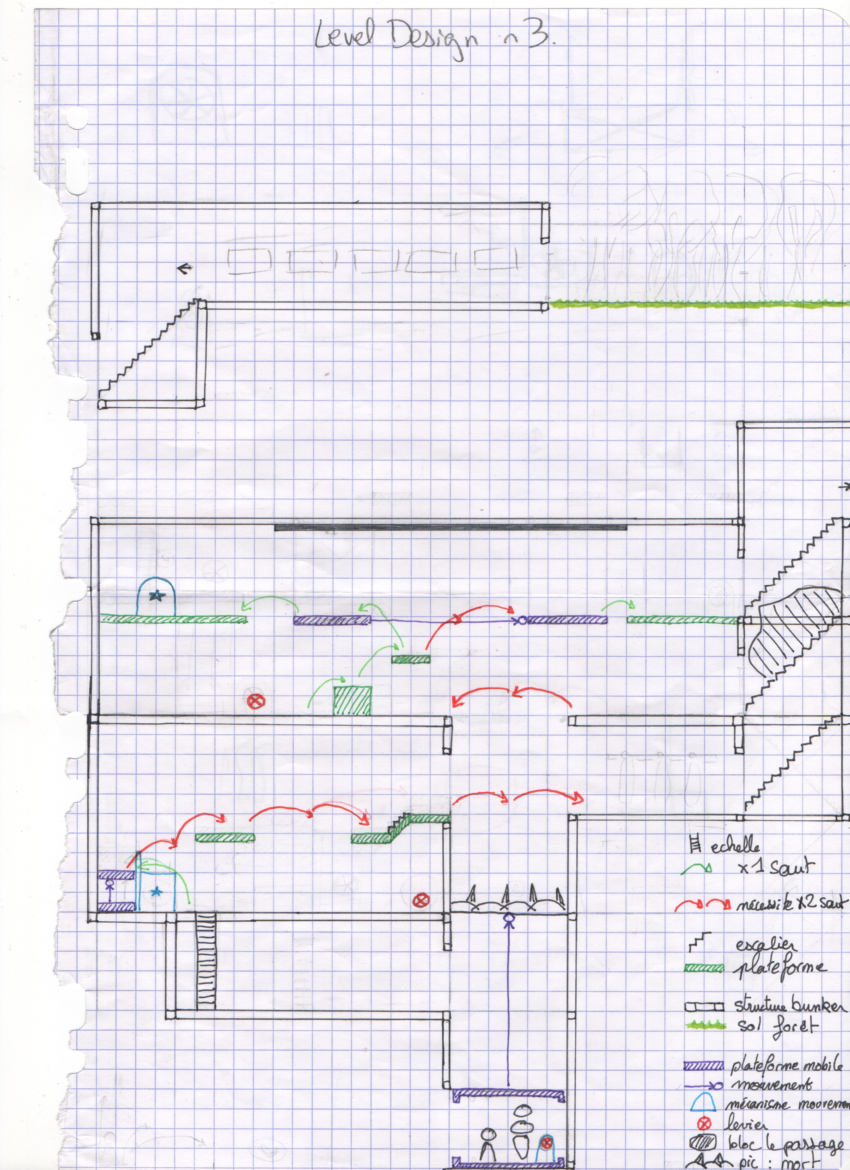 Level Design n 3.
echelle
x1 saut
nécessite x2 saut
escalier
plateforme
structure bunker
sol forêt
plateforme mobile
mouvement
mécanisme mouvemen
levier
bloc le passage
pic : mort